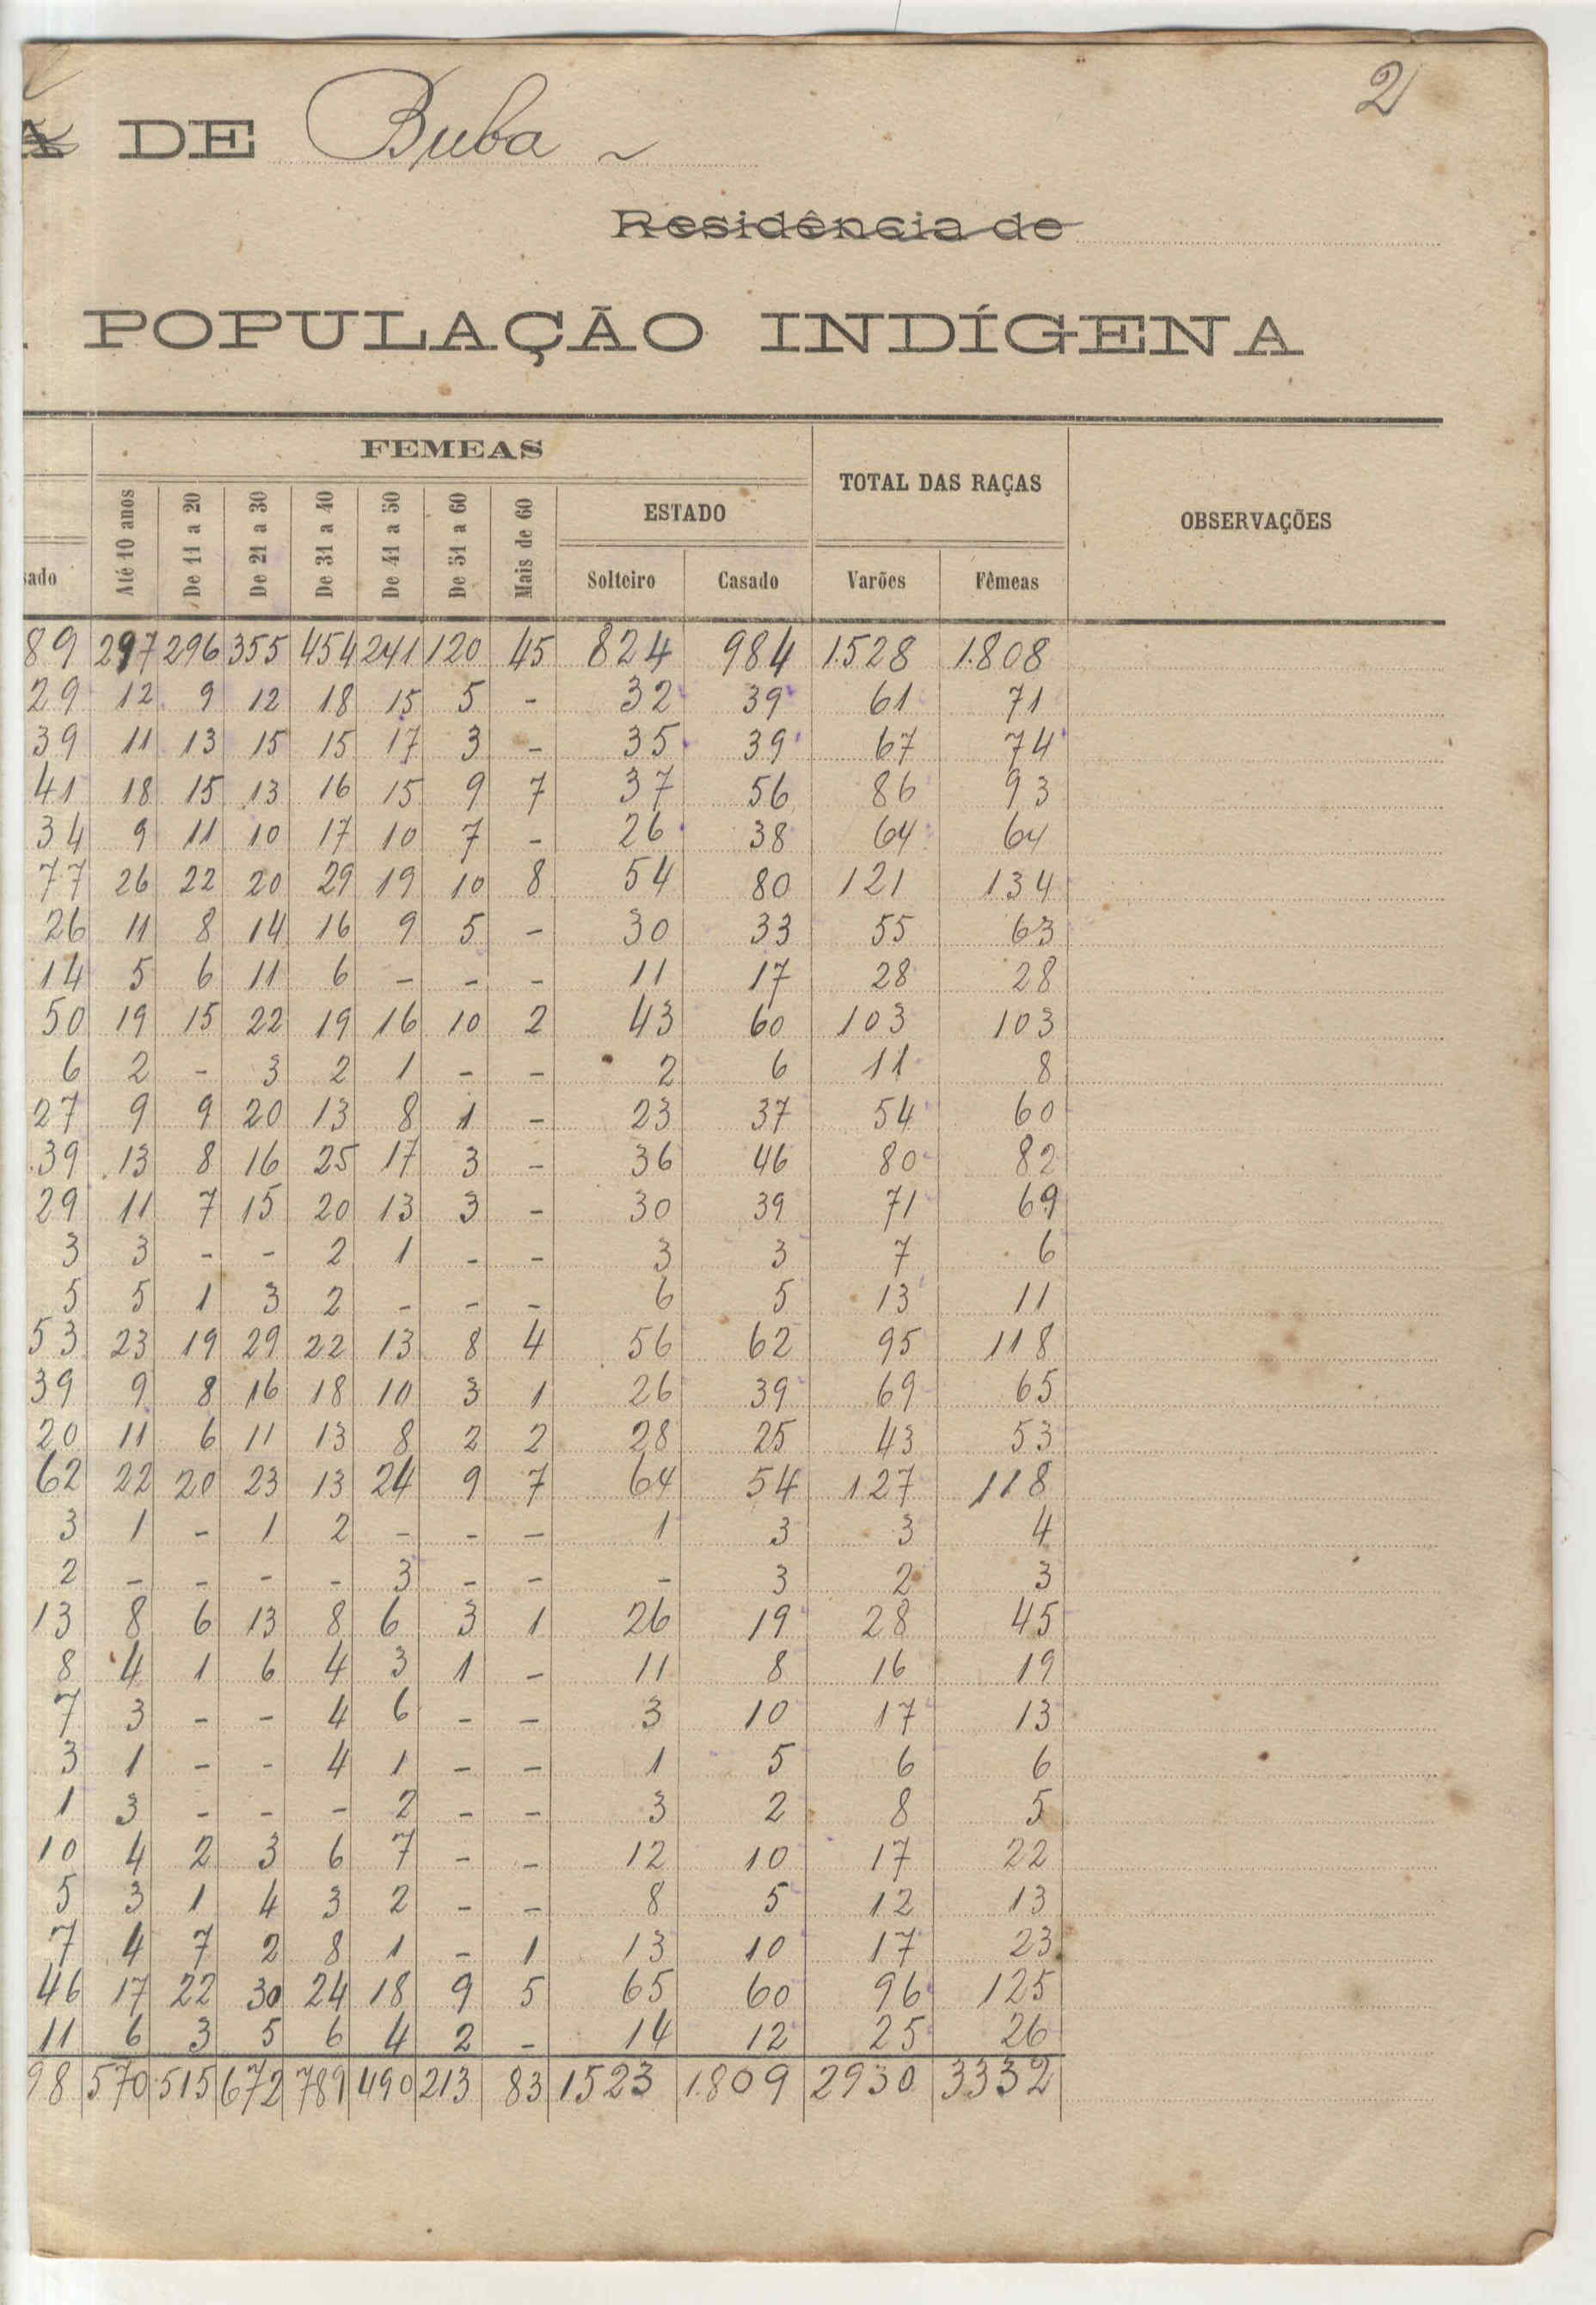 2
DE Buba ~
Residência de
POPULAÇÃO INDÍGENA
FEMEAS
TOTAL DAS RAÇAS
OBSERVAÇÕES
ESTADO
ado Até 10 anos De 11 a 20 De 21 a 30 De 31 a 40 De 41 a 50 De 51 a 60 Mais de 60 Solteiro Casado Varões Fêmeas
89 297 296 355 454 241 120 45 824 984 1.528 1.808
29 12 9 12 18 15 5 - 32 39 61 71
39 11 13 15 15 17 3 - 35 39 67 74
41 18 15 13 16 15 9 7 37 56 86 93
34 9 11 10 17 10 7 - 26 38 64 64
77 26 22 20 29 19 10 8 54 80 121 134
26 11 8 14 16 9 5 - 30 33 55 63
14 5 6 11 6 - - - 11 17 28 28
50 19 15 22 19 16 10 2 43 60 103 103
6 2 - 3 2 1 - - 2 6 11 8
27 9 9 20 13 8 1 - 23 37 54 60
39 13 8 16 25 17 3 - 36 46 80 82
29 11 7 15 20 13 3 - 30 39 71 69
3 3 - - 2 1 - - 3 3 7 6
5 5 1 3 2 - - - 6 5 13 11
53 23 19 29 22 13 8 4 56 62 95 118
39 9 8 16 18 10 3 1 26 39 69 65
20 11 6 11 13 8 2 2 28 25 43 53
62 22 20 23 13 24 9 7 64 54 127 118
3 1 - 1 2 - - - 1 3 3 4
2 - - - - 3 - - - 3 2 3
13 8 6 13 8 6 3 1 26 19 28 45
8 4 1 6 4 3 1 - 11 8 16 19
7 3 - - 4 6 - - 3 10 17 13
3 1 - - 4 1 - - 1 5 6 6
1 3 - - - 2 - - 3 2 8 5
10 4 2 3 6 7 - - 12 10 17 22
5 3 1 4 3 2 - - 8 5 12 13
7 4 7 2 8 1 - 1 13 10 17 23
46 17 22 30 24 18 9 5 65 60 96 125
11 6 3 5 6 4 2 - 14 12 25 26
98 570 515 672 789 490 213 83 1523 1.809 2930 3332